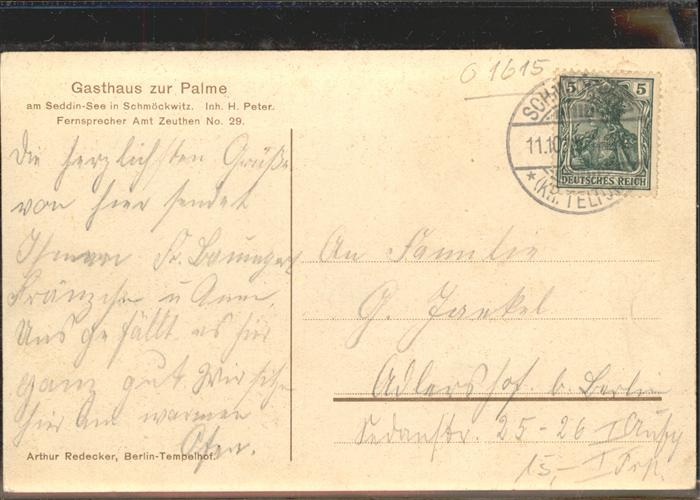 Gasthaus zur Palme
am Seddin-See in Schmöckwitz. Inh. H. Peter.
Fernsprecher Amt Zeuthen No. 29.
Die herzlichsten Grüße
von hier sendet
Ihnen Fr.
Fränzchen u Anni.
Uns gefällt es hier
ganz gut. Wir sitzen
hier am warmen
Ofen.
Arthur Redecker, Berlin-Tempelhof.
01615
5 5
DEUTSCHES REICH
11.10
* (KR. TELTOW)
An Familie
G. Jankel
Adlershof b. Berlin
Sedanstr. 25-26 I Aufg
15,-